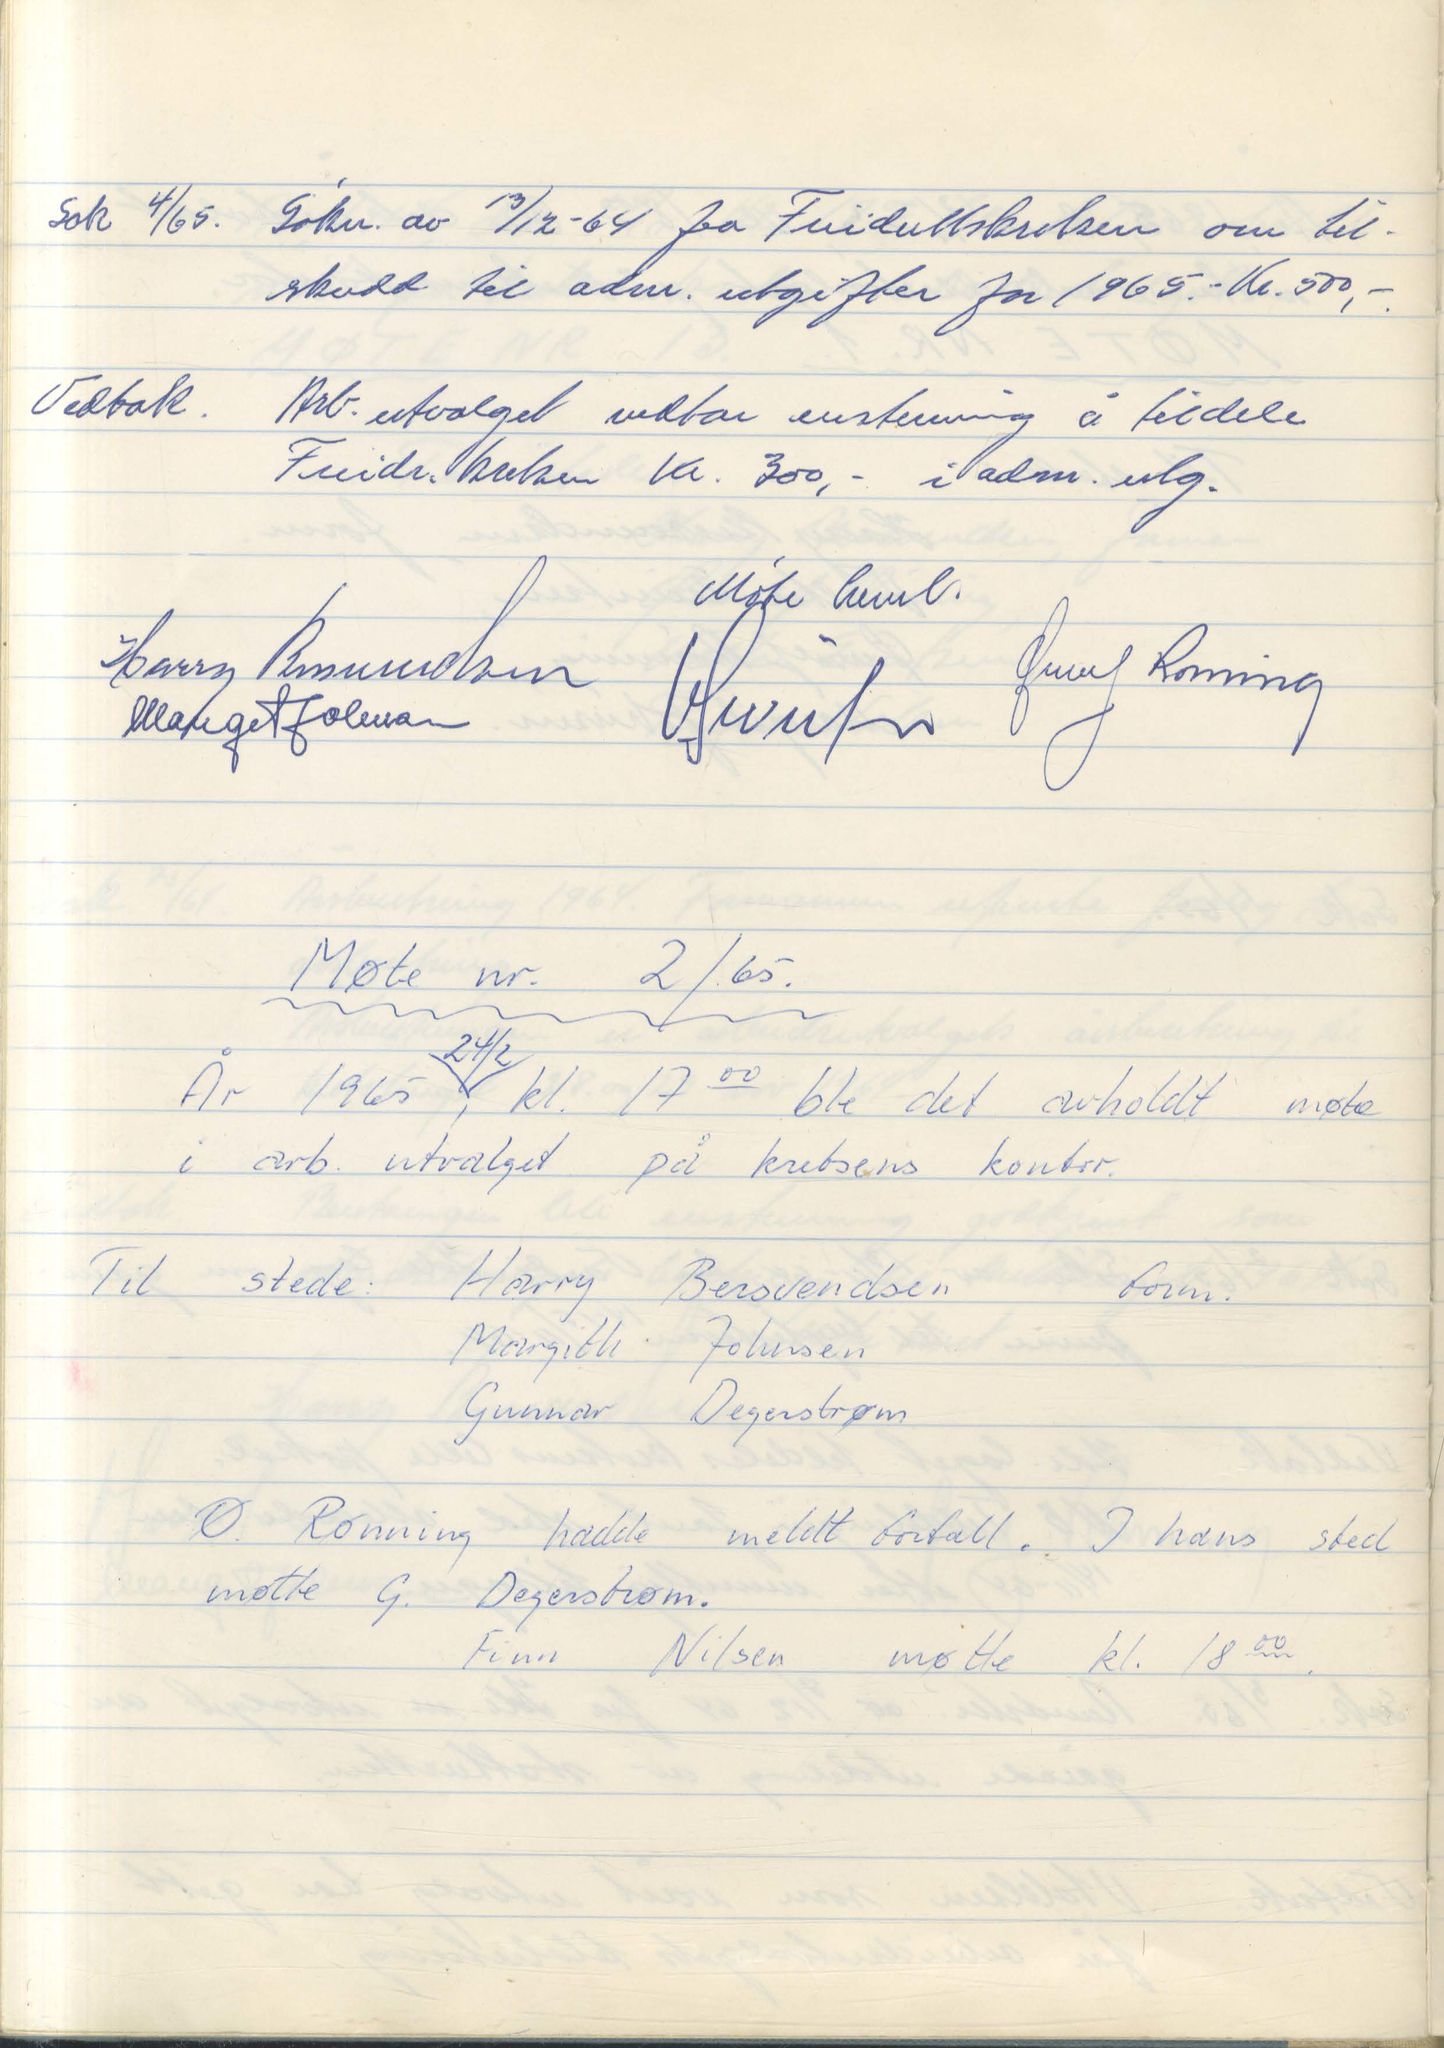 Sak 4/65. Søkn. av 13/12-64 fra Friidrettskretsen om til-
skudd til adm. utgifter for 1965.- Kr. 500,-.
Vedtak. Arb. utvalget vedtar enstemmig å tildele
Friidr. kretsen Kr. 300,- i adm. utg.
Møte hevet.
Harry Rønning
Møte nr. 2/65.
24/2
År 1965, kl. 17 00 ble det avholdt møte
i arb. utvalget på kretsens kontor.
Til stede: Harry Bersvendsen form.
Margith Johnsen
Gunnar Degerstrøm
Ø. Rønning hadde meldt forfall. I hans sted
møtte G. Degerstrøm.
Finn Nilsen møtte kl. 18 00.